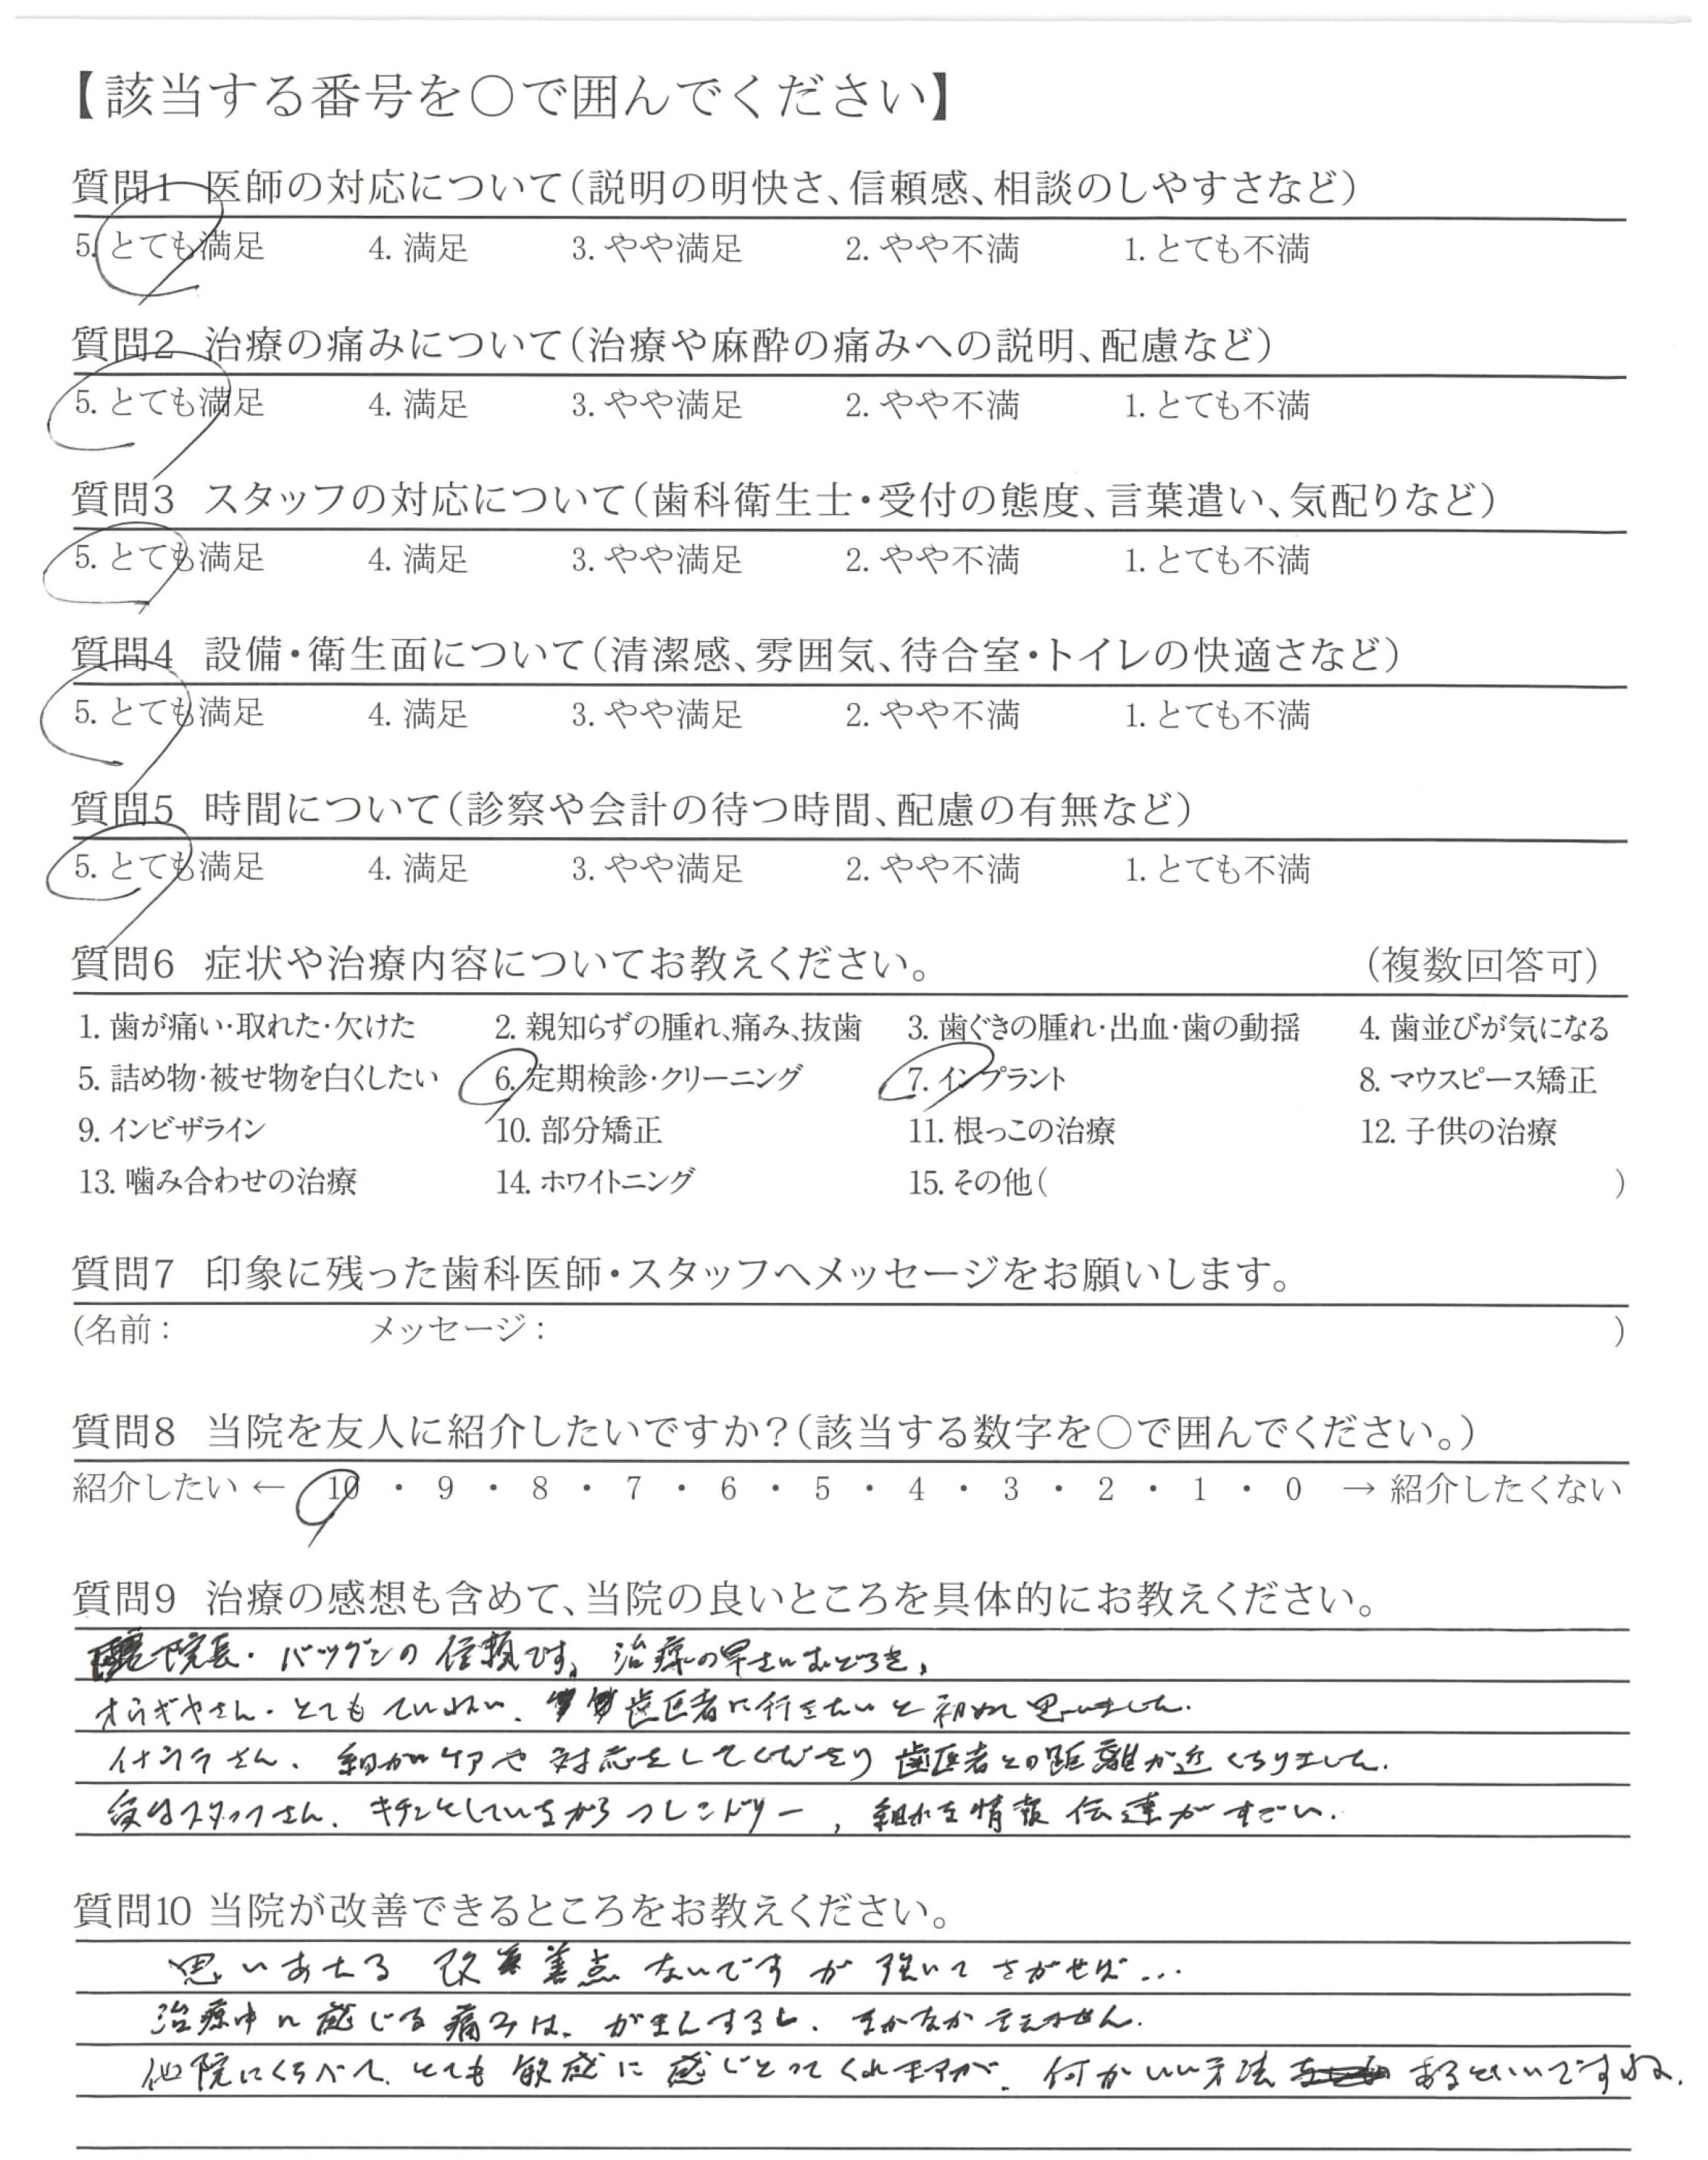 【該当する番号を○で囲んでください】
質問1 医師の対応について(説明の明快さ、信頼感、相談のしやすさなど)
5. とても満足 4. 満足 3. やや満足 2. やや不満 1. とても不満
質問2 治療の痛みについて(治療や麻酔の痛みへの説明、配慮など)
5. とても満足 4. 満足 3. やや満足 2. やや不満 1. とても不満
質問3 スタッフの対応について(歯科衛生士・受付の態度、言葉遣い、気配りなど)
5. とても満足 4. 満足 3. やや満足 2. やや不満 1. とても不満
質問4 設備・衛生面について(清潔感、雰囲気、待合室・トイレの快適さなど)
5. とても満足 4. 満足 3. やや満足 2. やや不満 1. とても不満
質問5 時間について(診察や会計の待つ時間、配慮の有無など)
5. とても満足 4. 満足 3. やや満足 2. やや不満 1. とても不満
質問6 症状や治療内容についてお教えください。 (複数回答可)
1. 歯が痛い・取れた・欠けた 2. 親知らずの腫れ、痛み、抜歯 3. 歯ぐきの腫れ・出血・歯の動揺 4. 歯並びが気になる
5. 詰め物・被せ物を白くしたい 6. 定期検診・クリーニング 7. インプラント 8. マウスピース矯正
9. インビザライン 10. 部分矯正 11. 根っこの治療 12. 子供の治療
13. 噛み合わせの治療 14. ホワイトニング 15. その他( )
質問7 印象に残った歯科医師・スタッフへメッセージをお願いします。
(名前: メッセージ: )
質問8 当院を友人に紹介したいですか?(該当する数字を○で囲んでください。)
紹介したい ← 10 ・ 9 ・ 8 ・ 7 ・ 6 ・ 5 ・ 4 ・ 3 ・ 2 ・ 1 ・ 0 → 紹介したくない
質問9 治療の感想も含めて、当院の良いところを具体的にお教えください。
院長・バツグンの信頼です。治療の早さにおどろき、
さん・とてもていねい、歯医者に行きたいと初めて思いました。
さん、細かいケアや対応をしてくださり歯医者との距離が近くなりました。
受付スタッフさん、キチンとしていながらフレンドリー、細かな情報伝達がすごい。
質問10 当院が改善できるところをお教えください。
思いあたる改善点ないですが強いてさがせば...
治療中に感じる痛みは、がまんすると、なかなか言えません。
他院にくらべて、とても敏感に感じとってくれますが、何かいい方法あるといいですね。